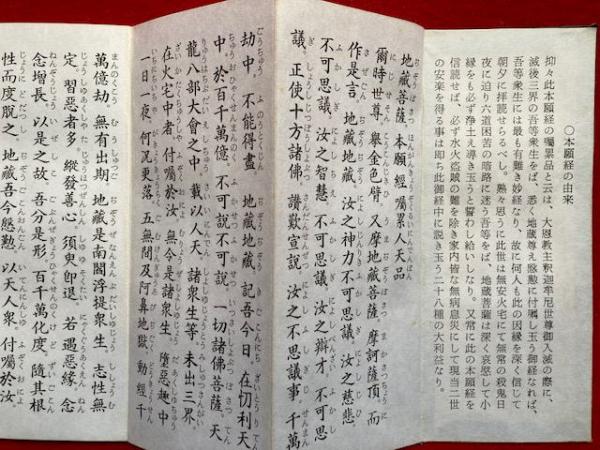 〇本願経の由来
抑々此本願経の囑累品と云は、大恩教主釈迦牟尼世尊御入滅の際に、
滅後三界の吾等衆生をば、悉く地蔵尊え慇懃に付囑し玉う御経なれば、
吾等衆生には最も有難き妙経なり、故に何人も此の因縁を深く信じて
朝夕に拝読せらるべし。熟々思うに此世は無安火宅にて無常の殺鬼日
夜に迫り六道困苦の暗路に迷う吾等をば、地蔵菩薩は深く哀愍して小
縁をも必ず浄土え導き玉うと誓わし給いしなり。又常に此の本願経を
信読せば、必ず水火盗賊の難を除き家内皆な無病息災にして現当二世
の安楽を得る事は即ち此御経中に説き玉う二十八種の大利益なり。
地藏菩薩本願經囑累人天品
爾時世尊、擧金色臂、又摩地藏菩薩、摩訶薩頂、而
作是言、地藏地藏、汝之神力不可思議、汝之慈悲、
不可思議、汝之智慧、不可思議、汝之辯才、不可思
議、正使十方諸佛、讚歎宣說、汝之不思議事、千萬
劫中、不能得盡 地藏地藏、記吾今日、在忉利天
中、於百千萬億、不可說不可說、一切諸佛菩薩、天
龍八部大會之中、載以人天、諸衆生等、未出三界、
在火宅中者、付囑於汝、無令是諸衆生、墮惡趣中
一日一夜、何況更落、五無間及阿鼻地獄、動經千
萬億劫、無有出期、地藏是南閻浮提衆生、志性無
定、習惡者多、縱發善心、須臾卽退、若遇惡緣、念
念增長、以是之故、吾分是形、百千萬化度、隨其根
性而度脫之、地藏吾今慇懃、以天人衆、付囑於汝